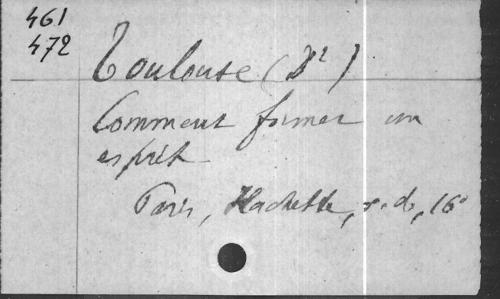 461
472
Toulouse (Dr)
Comment former un
esprit
Paris, Hachette, s.d., 16°